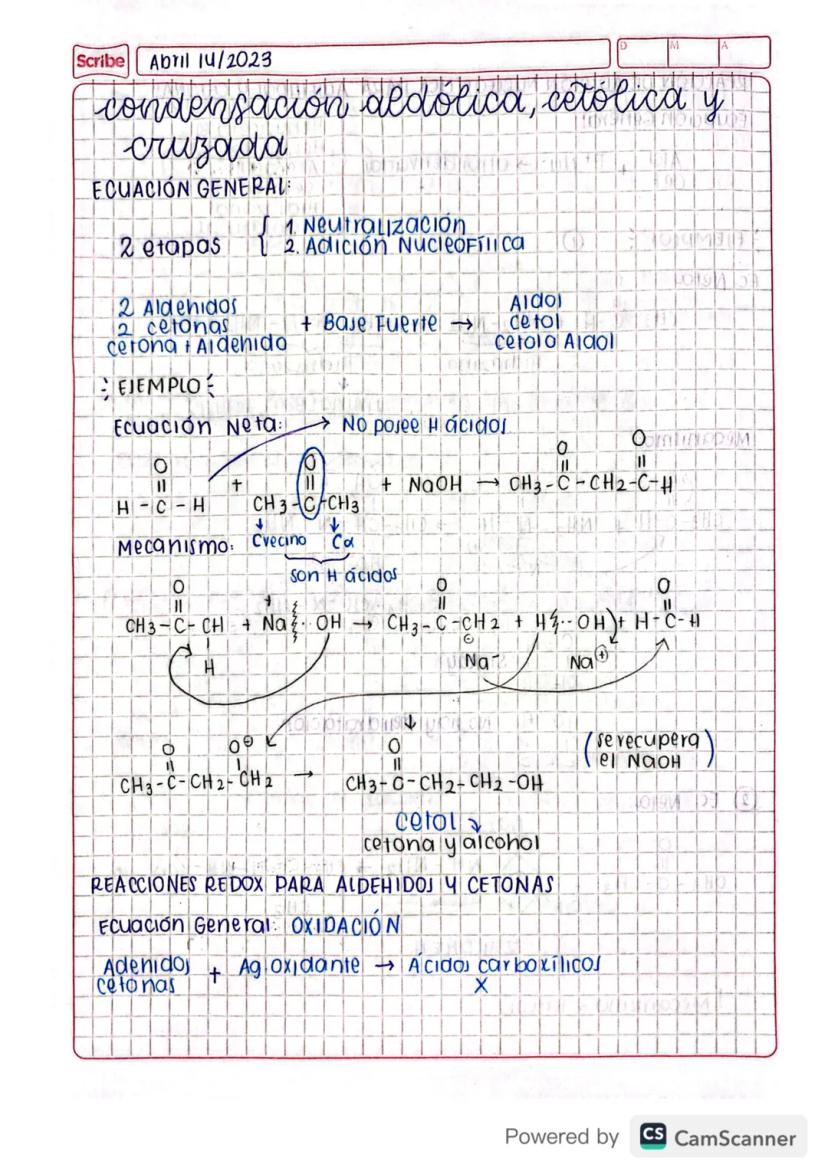 Scribe Abril 14/2023 D M A
condensación aldólica, cetólica y
cruzada
ECUACIÓN GENERAL:
2 etapas { 1. Neutralización
2. Adición Nucleofílica
2 Aldehidos
2 cetonas
cetona + Aldehido
+ Base Fuerte →
Aldol
cetol
cetol o Aldol
EJEMPLO
Ecuación Neta: → No posee H ácidos
O O O O
|| || || ||
H - C - H + CH3 - C - CH3 + NaOH → CH3 - C - CH2 - C - H
↓ ↓
Mecanismo: Cvecino Cα
son H ácidos
O O O
|| || ||
CH3 - C - CH + Na+ ·· OH → CH3 - C - CH2 + H ·· OH + H - C - H
| ⊖
H Na- Na⊕
↓
O O⊖ O
|| | ||
CH3 - C - CH2 - CH2 → CH3 - C - CH2 - CH2 - OH
(se recupera
el NaOH)
cetol ↘
cetona y alcohol
REACCIONES REDOX PARA ALDEHIDOS Y CETONAS
Ecuación General: OXIDACIÓN
Adehidos
cetonas
+ Ag. oxidante → Ácidos carboxílicos
X
Powered by CS CamScanner